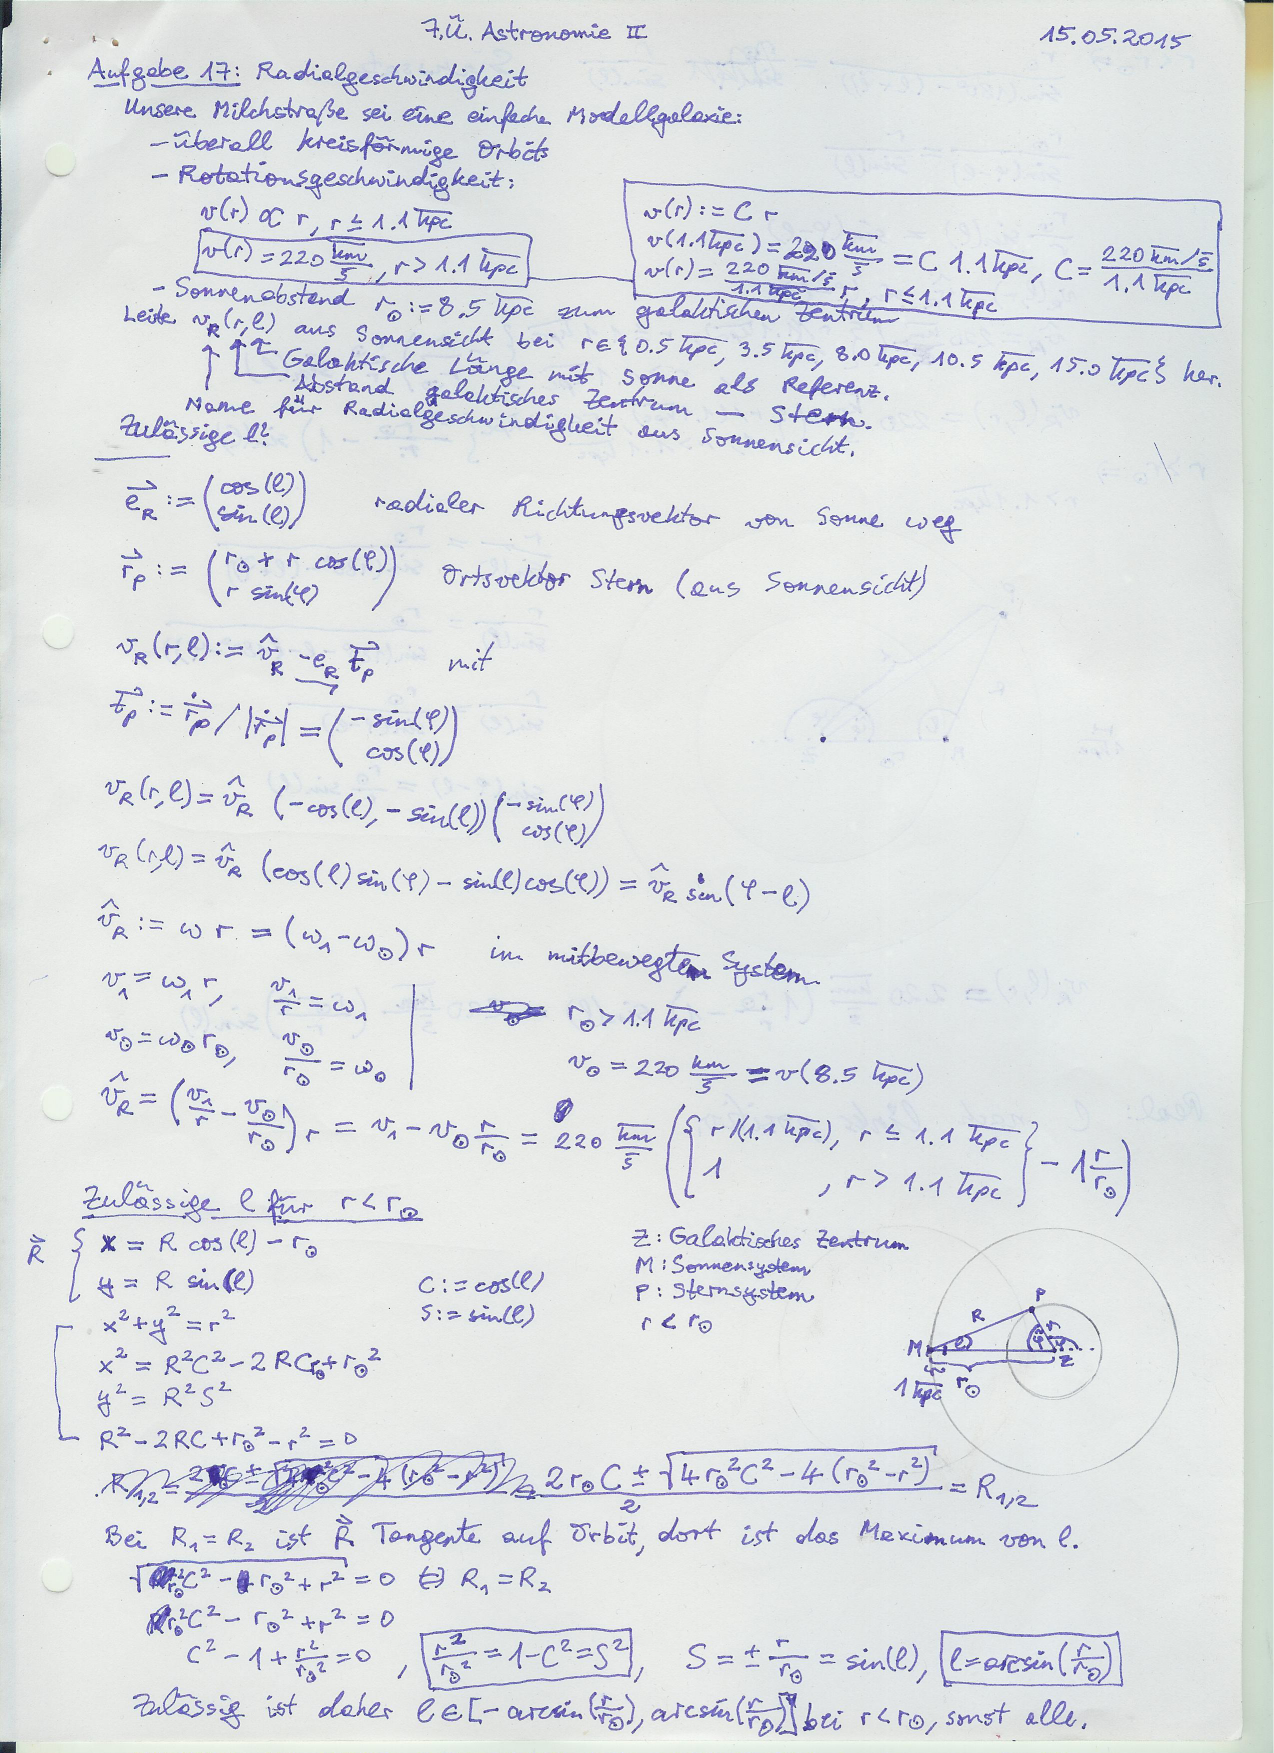 7.Ü. Astronomie II 15.05.2015
Aufgabe 17: Radialgeschwindigkeit
Unsere Milchstraße sei eine einfache Modellgalaxie:
- überall kreisförmige Orbits
- Rotationsgeschwindigkeit:
v(r) ∝ r, r ≤ 1.1 kpc
v(r) = 220 km/s, r > 1.1 kpc
v(r) := C r
v(1.1 kpc) = 220 km/s = C 1.1 kpc, C = (220 km/s)/(1.1 kpc)
v(r) = (220 km/s)/(1.1 kpc) r, r ≤ 1.1 kpc
- Sonnenabstand r☉ := 8.5 kpc zum galaktischen Zentrum
Leite v_R(r,l) aus Sonnensicht bei r ∈ {0.5 kpc, 3.5 kpc, 8.0 kpc, 10.5 kpc, 15.0 kpc} her.
Galaktische Länge mit Sonne als Referenz.
Abstand galaktisches Zentrum – Stern.
Name für Radialgeschwindigkeit aus Sonnensicht.
Zulässige l?
e⃗_R := (cos(l) sin(l)) radialer Richtungsvektor von Sonne weg
r⃗_P := (r☉ + r cos(φ) r sin(φ)) Ortsvektor Stern (aus Sonnensicht)
v_R(r,l) := v̂_R -e⃗_R t⃗_P mit
t⃗_P := ṙ⃗_P / |ṙ⃗_P| = (-sin(φ) cos(φ))
v_R(r,l) = v̂_R (-cos(l), -sin(l)) (-sin(φ) cos(φ))
v_R(r,l) = v̂_R (cos(l) sin(φ) - sin(l) cos(φ)) = v̂_R sin(φ-l)
v̂_R := ω r = (ω₁-ω☉) r im mitbewegten System.
v₁ = ω₁ r, v₁/r = ω₁ r☉ > 1.1 kpc
v☉ = ω☉ r☉, v☉/r☉ = ω☉ v☉ = 220 km/s = v(8.5 kpc)
v̂_R = (v₁/r - v☉/r☉) r = v₁ - v☉ r/r☉ = 220 km/s ({r/(1.1 kpc), r ≤ 1.1 kpc 1, r > 1.1 kpc} - 1 r/r☉)
Zulässige l für r < r☉
R⃗ { x = R cos(l) - r☉
y = R sin(l) C := cos(l)
S := sin(l)
x² + y² = r²
x² = R²C² - 2RCr☉ + r☉²
y² = R²S²
R² - 2RC + r☉² - r² = 0
Z: Galaktisches Zentrum
M: Sonnensystem
P: Sternsystem
r < r☉
P
R
r
M l φ Z
1 kpc r☉
= (2r☉C ± √(4r☉²C² - 4(r☉² - r²)))/2 = R₁,₂
Bei R₁ = R₂ ist R⃗ Tangente auf Orbit, dort ist das Maximum von l.
√(r☉²C² - r☉² + r²) = 0 ⇔ R₁ = R₂
r☉²C² - r☉² + r² = 0
C² - 1 + r²/r☉² = 0, r²/r☉² = 1 - C² = S², S = ± r/r☉ = sin(l), l = arcsin(r/r☉)
Zulässig ist daher l ∈ [-arcsin(r/r☉), arcsin(r/r☉)] bei r < r☉, sonst alle.